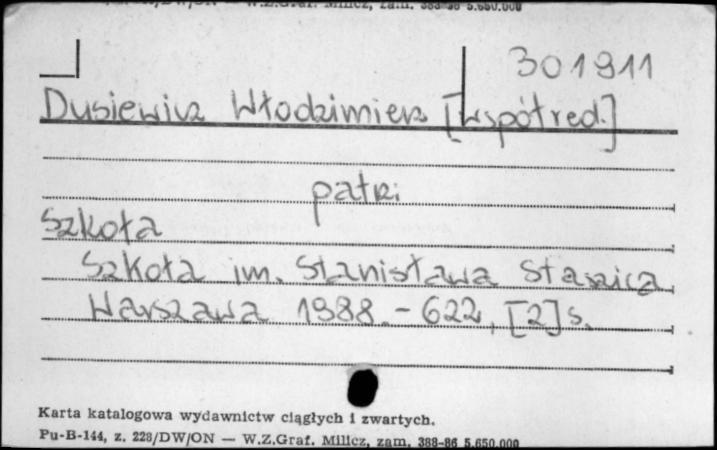 Pu-B-144, z. 228/DW/ON — W.Z.Graf. Milicz, zam. 388-86 5.650.000
301911
Dusiewicz Włodzimierz [współred.]
patrz
Szkoła
Szkoła im. Stanisława Staszica
Warszawa 1988. - 622, [2] s.
Karta katalogowa wydawnictw ciągłych i zwartych.
Pu-B-144, z. 228/DW/ON — W.Z.Graf. Milicz, zam. 388-86 5.650.000